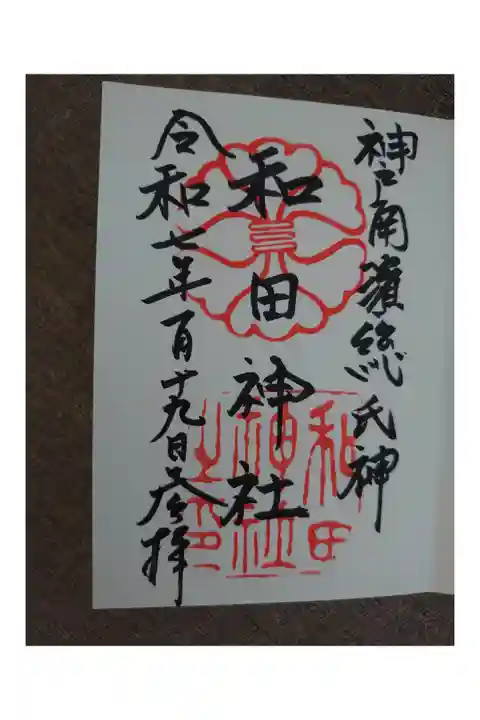 神戸角濵総氏神
和田神社
令和七年一月十九日参拝
和田
神社
之印